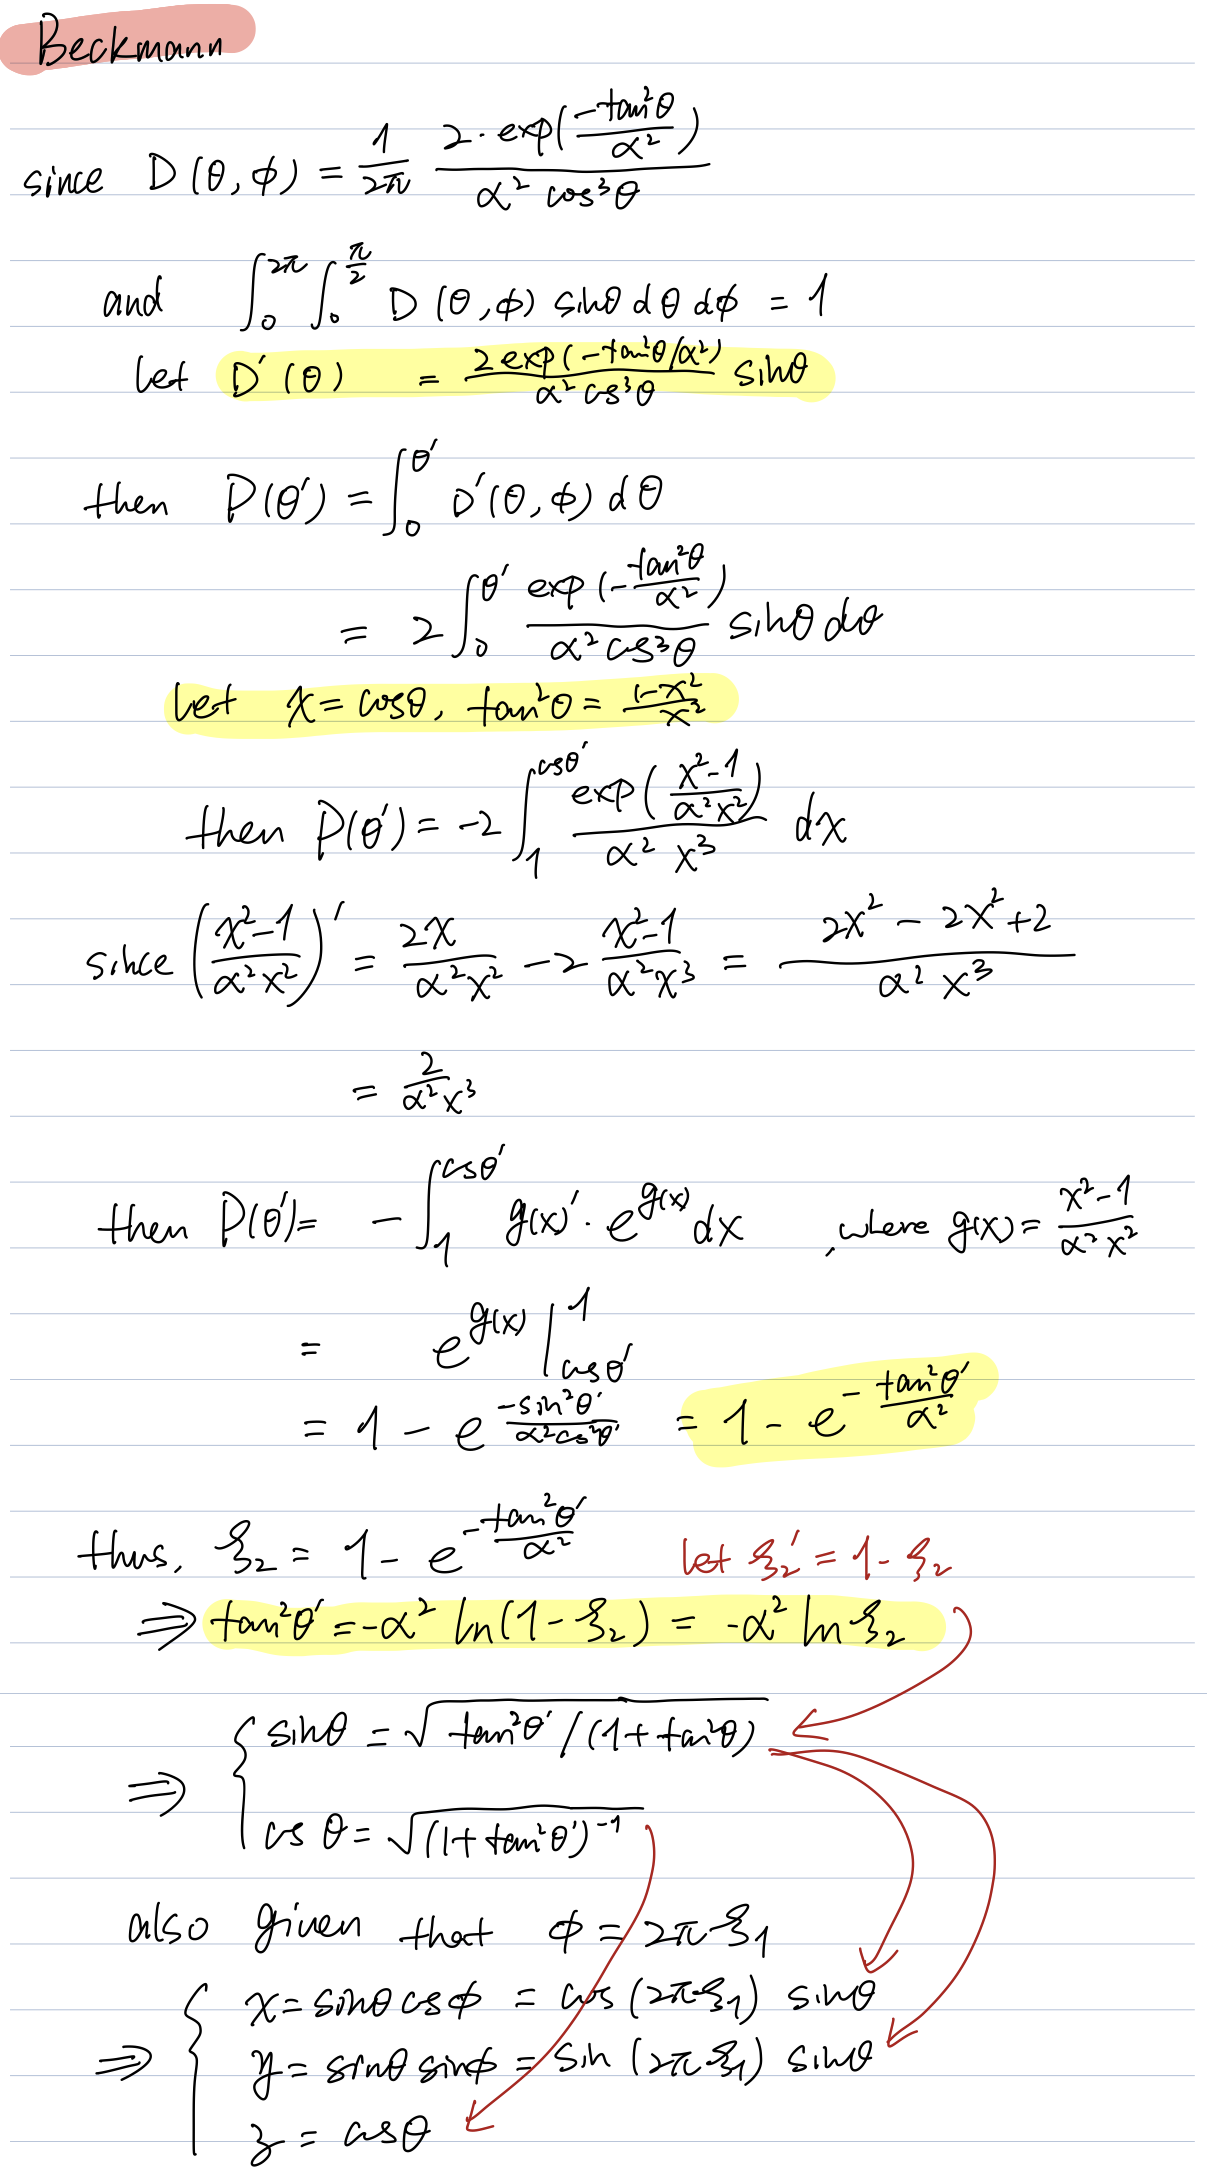 Beckmann
since D(θ,ϕ) = \frac{1}{2π} \frac{2·exp(\frac{-tan²θ}{α²})}{α² cos³θ}
and ∫_0^{2π} ∫_0^{\frac{π}{2}} D(θ,ϕ) sinθ dθ dϕ = 1
let D'(θ) = \frac{2 exp(-tan²θ/α²)}{α² cos³θ} sinθ
then P(θ') = ∫_0^{θ'} D'(θ,ϕ) dθ
= 2 ∫_0^{θ'} \frac{exp(-\frac{tan²θ}{α²})}{α² cos³θ} sinθ dθ
let x = cosθ, tan²θ = \frac{1-x²}{x²}
then P(θ') = -2 ∫_1^{cosθ'} \frac{exp(\frac{x²-1}{α²x²})}{α² x³} dx
since (\frac{x²-1}{α²x²})' = \frac{2x}{α²x²} - 2 \frac{x²-1}{α²x³} = \frac{2x² - 2x² + 2}{α² x³}
= \frac{2}{α²x³}
then P(θ') = - ∫_1^{cosθ'} g(x)' · e^{g(x)} dx , where g(x) = \frac{x²-1}{α²x²}
= e^{g(x)} |_{cosθ'}^1
= 1 - e^{\frac{-sin²θ'}{α²cos²θ'}} = 1 - e^{-\frac{tan²θ'}{α²}}
thus, ξ₂ = 1 - e^{-\frac{tan²θ'}{α²}} let ξ₂' = 1 - ξ₂
⇒ tan²θ' = -α² ln(1-ξ₂) = -α² ln ξ₂
⇒ { sinθ = √(tan²θ'/(1+tan²θ))
cosθ = √((1+tan²θ')^{-1})
also given that ϕ = 2πξ₁
⇒ { x = sinθ cosϕ = cos(2πξ₁) sinθ
y = sinθ sinϕ = sin(2πξ₁) sinθ
z = cosθ